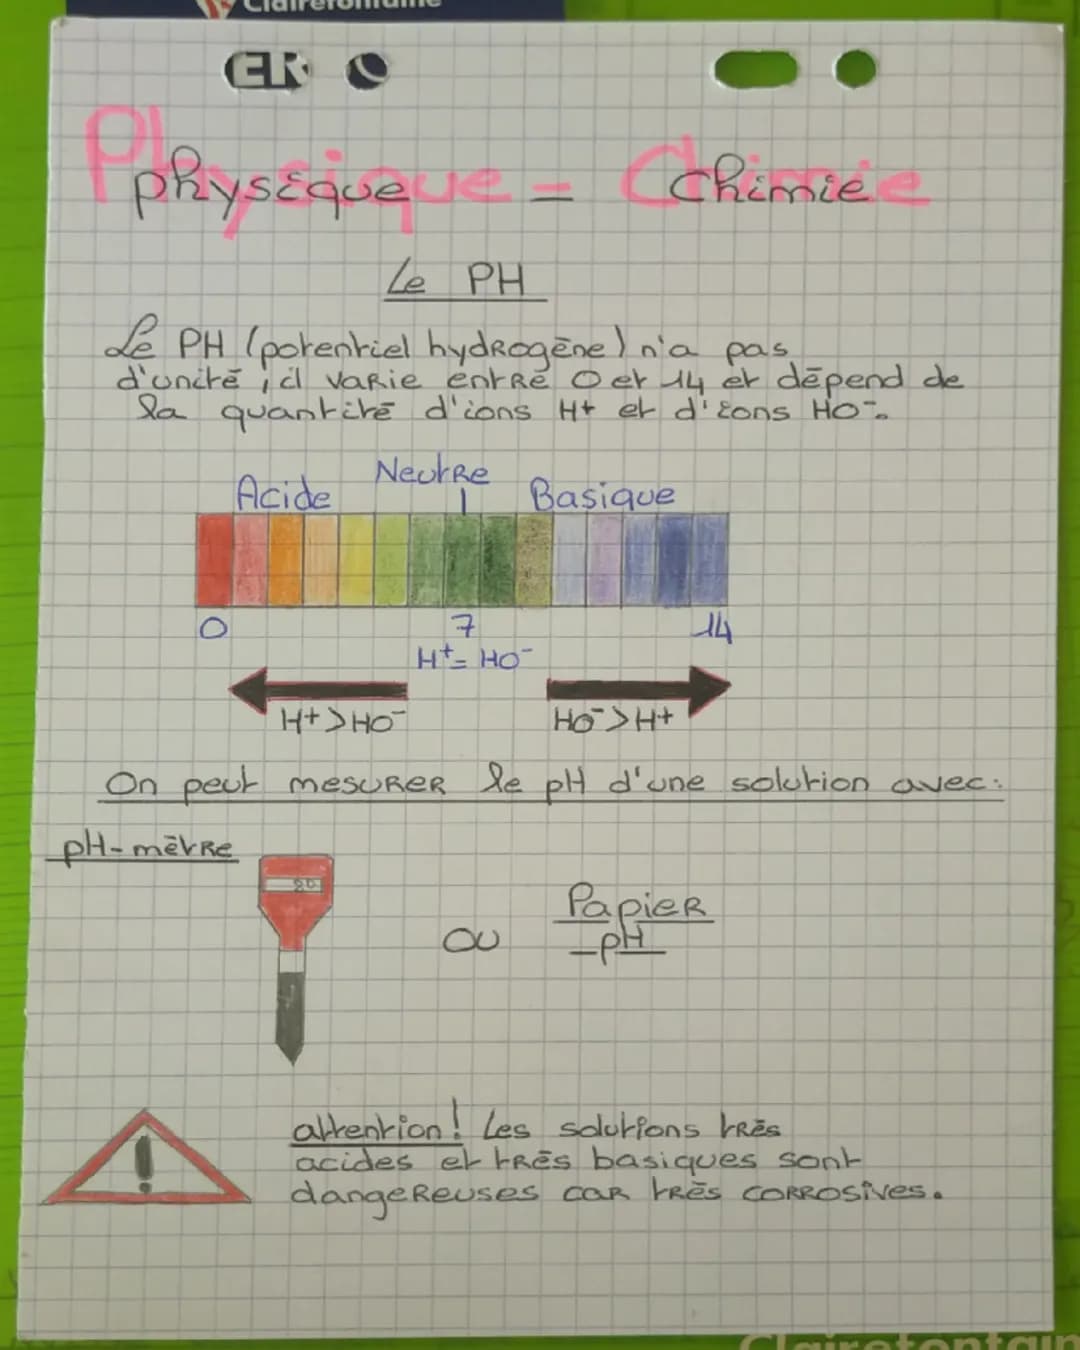 Clairefontaine
ER
Physique - Chimie
physique - chimie
Le PH
Le PH (potentiel hydrogène) n'a pas
d'unité, il varie entre 0 et 14 et dépend de
la quantité d'ions H+ et d'ions HO-.
Neutre
Acide Basique
0 7 14
H+ = HO-
H+ > HO- HO- > H+
On peut mesurer le pH d'une solution avec:
pH-mètre
Papier
ou
-pH
attention! Les solutions très
acides et très basiques sont
dangereuses car très corrosives.
Clairefontain